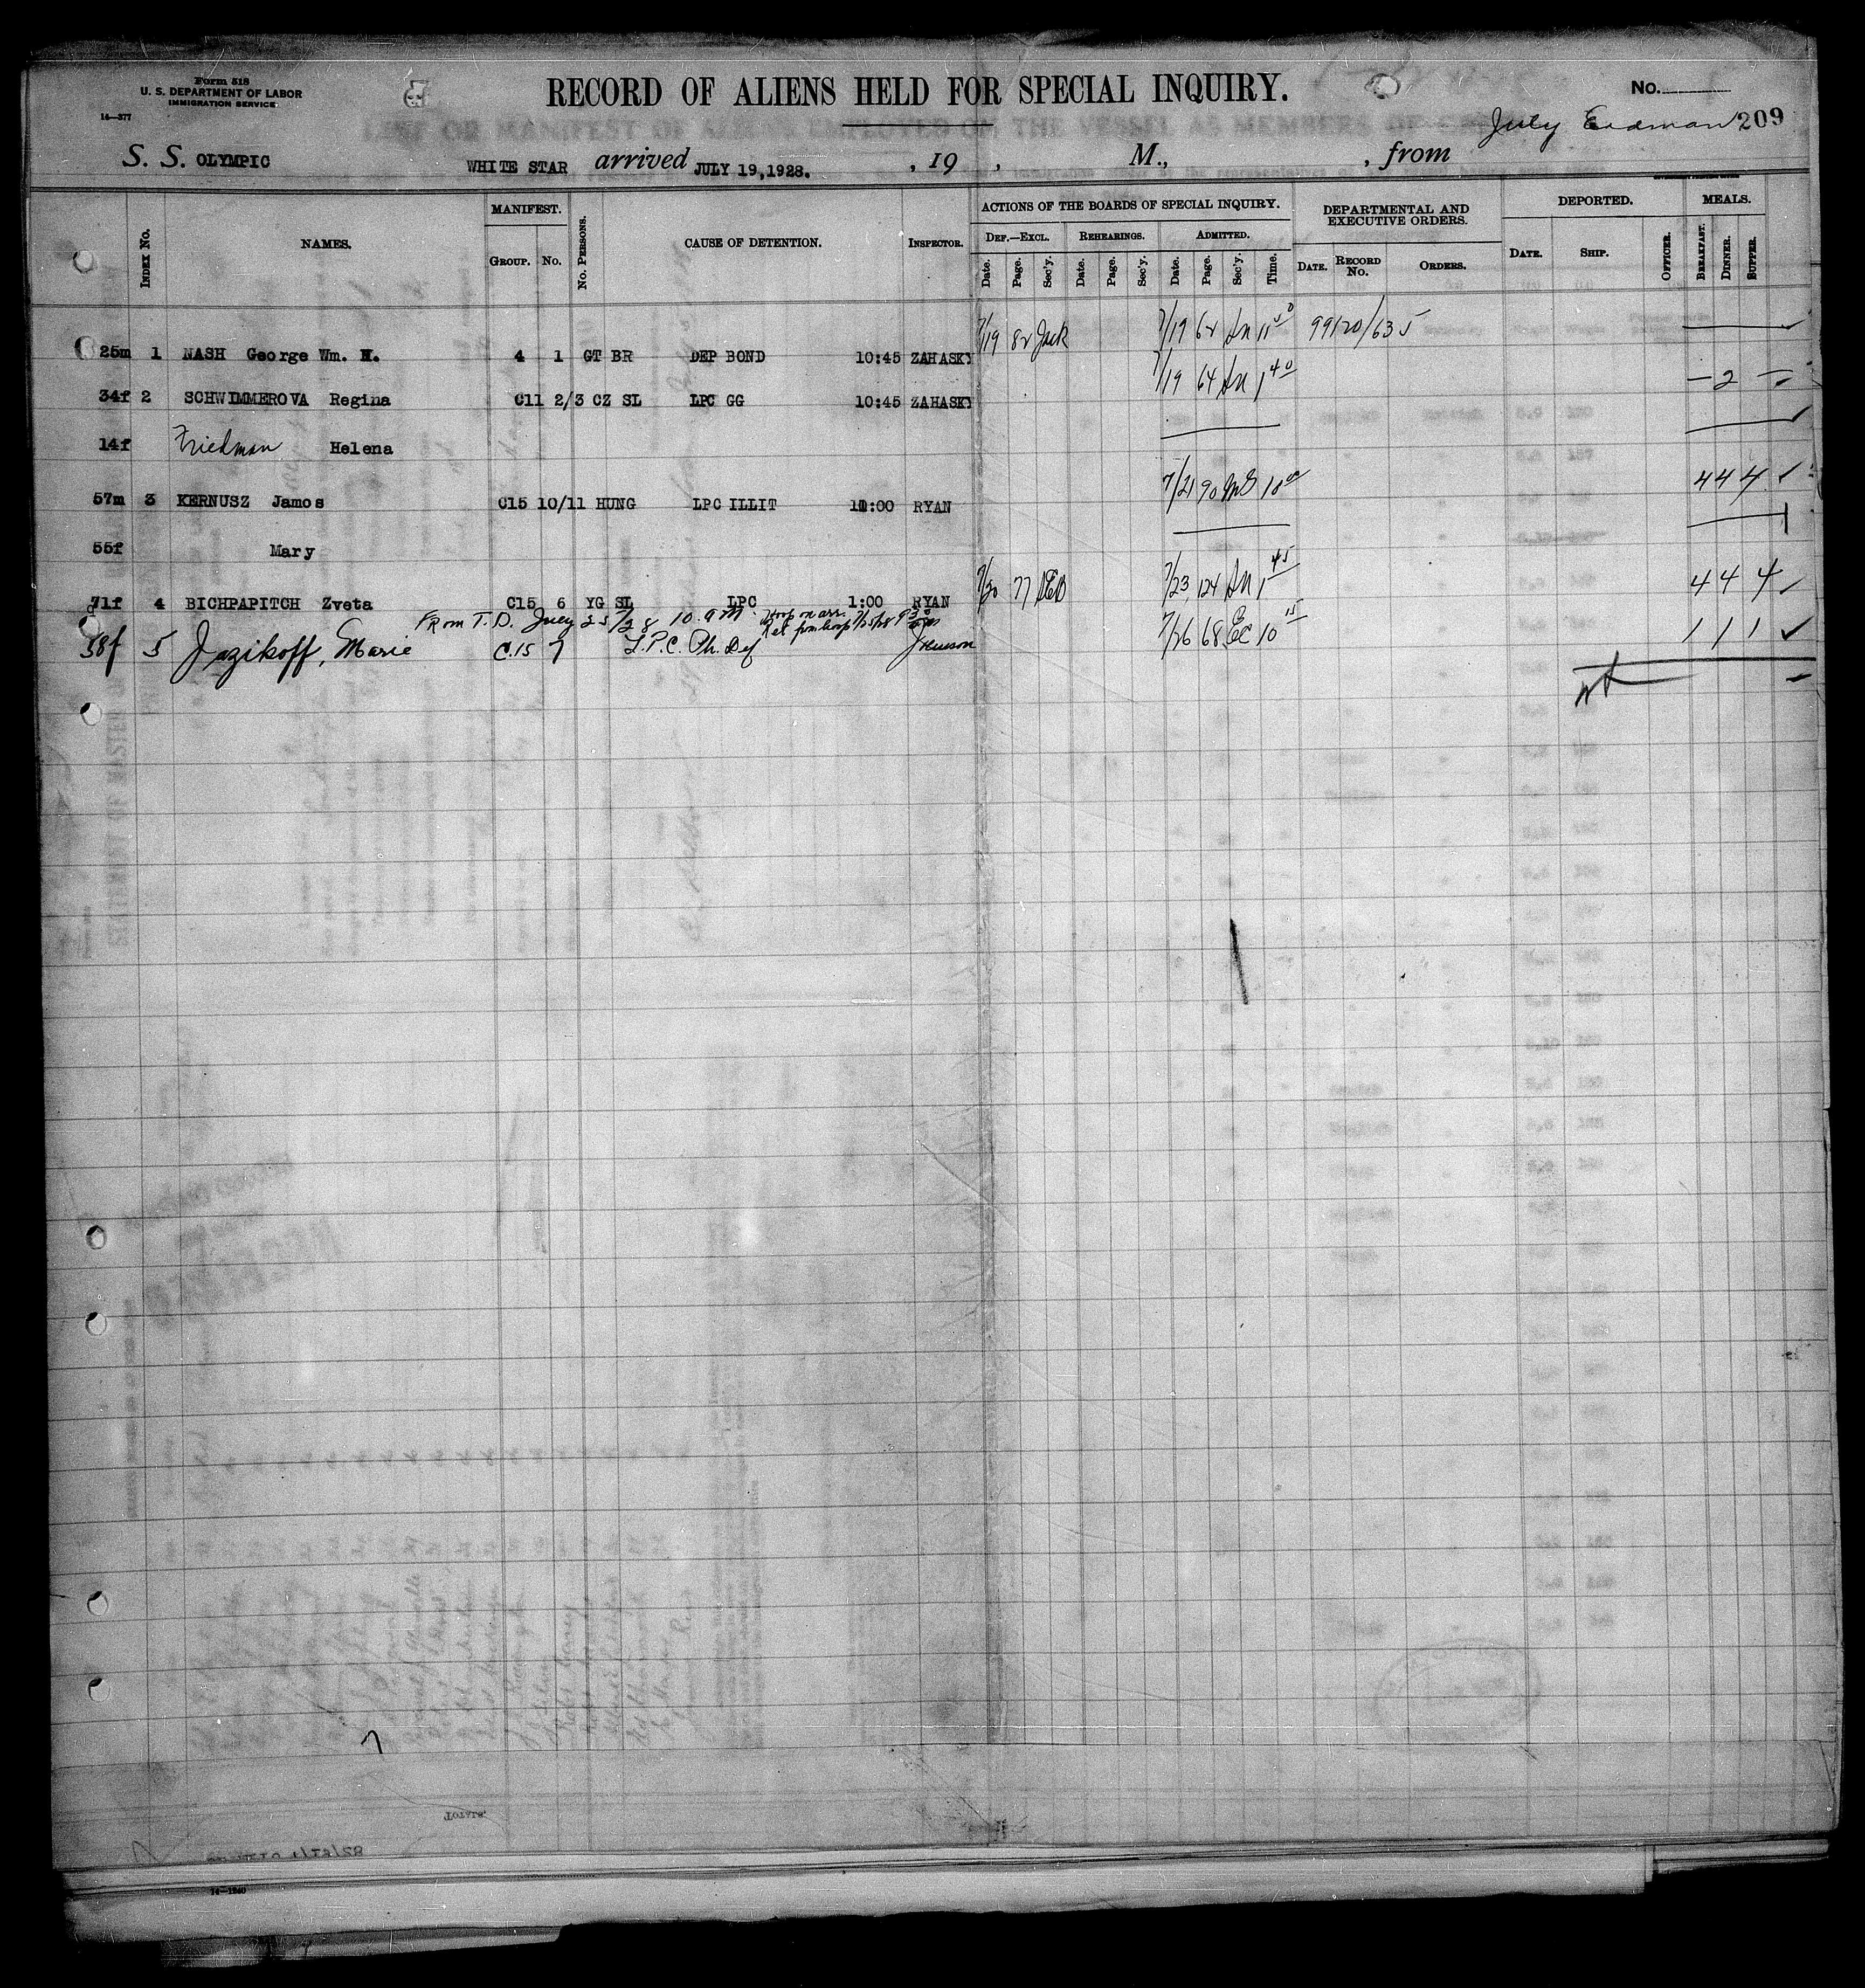 Form 518
U. S. DEPARTMENT OF LABOR
IMMIGRATION SERVICE
14—377
RECORD OF ALIENS HELD FOR SPECIAL INQUIRY.
No.
July Eadman 209
S. S. OLYMPIC WHITE STAR arrived JULY 19,1928. , 19 , M., , from
INDEX No. NAMES. MANIFEST. GROUP. No. No. PERSONS. CAUSE OF DETENTION. INSPECTOR. ACTIONS OF THE BOARDS OF SPECIAL INQUIRY. DEF.—EXCL. Date. Page. Sec'y. REHEARINGS. Date. Page. Sec'y. ADMITTED. Date. Page. Sec'y. Time. DEPARTMENTAL AND EXECUTIVE ORDERS. DATE. RECORD No. ORDERS. DEPORTED. DATE. SHIP. OFFICER. MEALS. BREAKFAST. DINNER. SUPPER.
25m 1 NASH George Wm. H. 4 1 GT BR DEP BOND 10:45 ZAHASKY 7/19 82 Jack 7/19 62 An 11 50 99120/635
34f 2 SCHWIMMEROVA Regina C11 2/3 CZ SL LPC GG 10:45 ZAHASKY 7/19 64 An 1 40 — 2 —
14f Friedman Helena
57m 3 KERNUSZ Jamos C15 10/11 HUNG LPC ILLIT 11:00 RYAN 7/21 90 MG 10 00 4 4 4
55f Mary
71f 4 BICHPAPITCH Zveta C15 6 YG SL LPC 1:00 RYAN 7/20 77 DEB 7/23 124 An 1 45 4 4 4
From T.D. July 25/28 10 AM Hosp on arr.
Ret from hosp 7/25/28 930
58f 5 Jazikoff, Marie C.15 7 L.P.C. Ph. Def 7/26 68 EC 10 15 1 1 1
14—1240